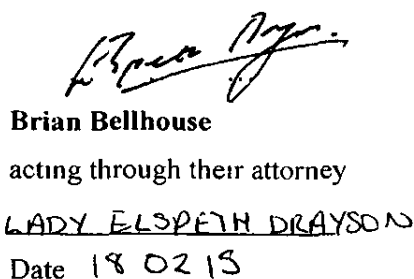 Brian Bellhouse
acting through their attorney
LADY ELSPETH DRAYSON
Date 18 02 15